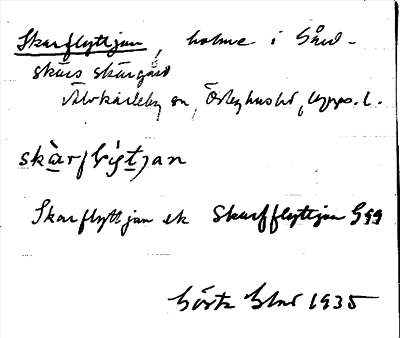 Skarflyttjan, holme i Gård-
skärs skärgård
Älvkarleby sn, Örbyhus hd, Upps. l.
skàrflyt̀jan
Skarflyttjan ek Skarfflyttjan Ggg
Gösta 1935